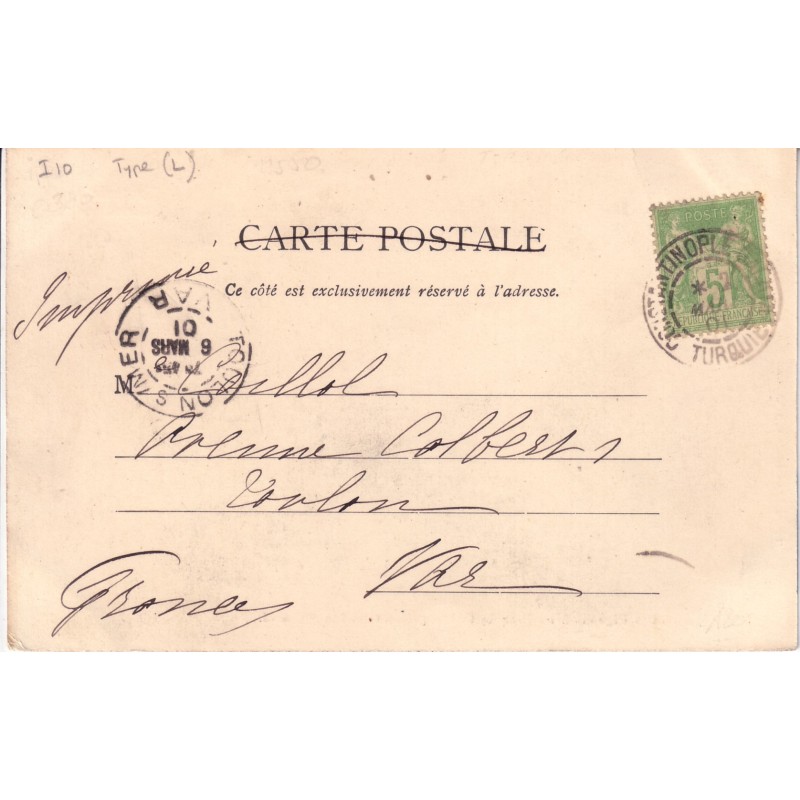 I10 Type (L)
CARTE POSTALE
Ce côté est exclusivement réservé à l'adresse.
Imprimé
POSTE
5
RÉPUBLIQUE FRANÇAISE
CONSTANTINOPLE
TURQUIE
TOULON S MER
6 MARS
01
VAR
M
Avenue Colbert 1
Toulon
Var
France